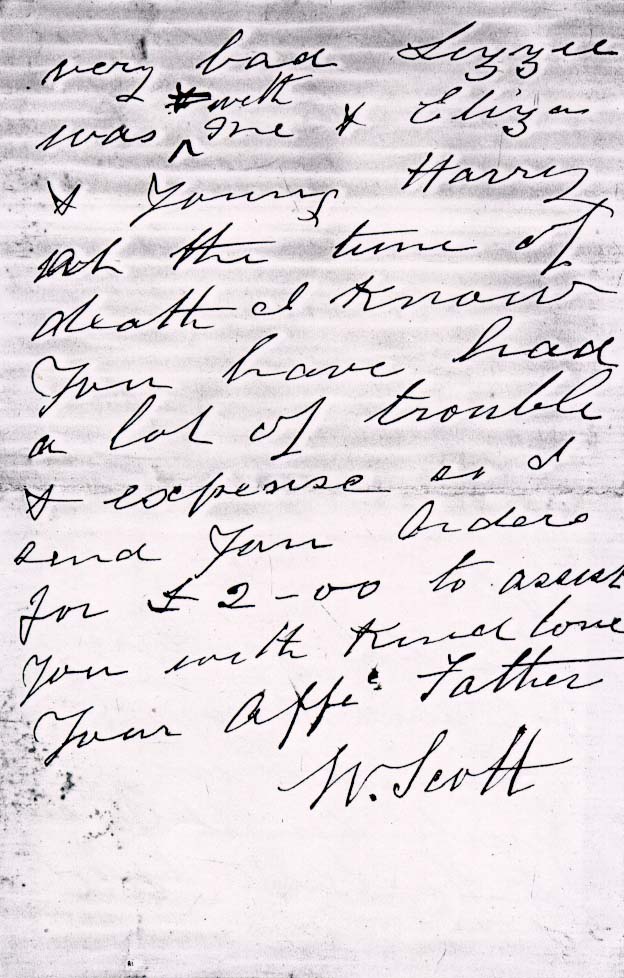 very bad Lizzie
with
was me & Eliza
& Young Harry
at the time of
death I know
You have had
a lot of trouble
& expense so I
send You Orders
for £2-00 to assist
You with Kind love
Your Affe Father
W. Scott